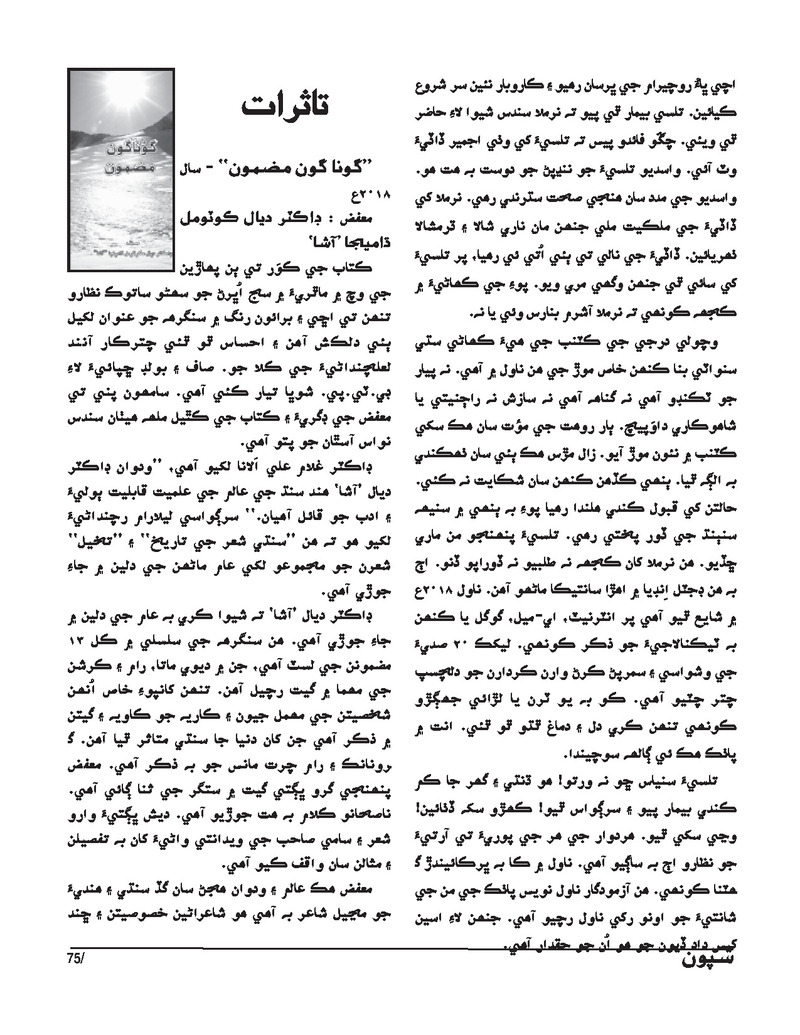 اچي ڀاءُ روچيرام جي پرسان رهيو ۽ ڪاروبار نئين سر شروع
ڪيائين. تلسي بيمار ٿي پيو ته نرملا سندس شيوا لاءِ حاضر
ٿي ويئي. چڱو فائدو پيس ته تلسيءَ کي وٺي اجمير ڏاڏيءَ
وٽ آئي. واسديو تلسيءَ جو ننڍپڻ جو دوست به هت هو.
واسديو جي مدد سان هنجي صحت سڌرندي رهي. نرملا کي
ڏاڏيءَ جي ملڪيت ملي جنهن مان ناري شالا ۽ ڌرمشالا
ٺهريائين. ڏاڏيءَ جي نالي تي ٻئي اُتي ئي رهيا، پر تلسيءَ
کي سائي ٿي جنهن وگهي مري ويو. پوءِ جي ڪهاڻيءَ ۾
ڪجهه ڪونهي ته نرملا آشرم بنارس وئي يا نه.
وچولي درجي جي ڪٽنب جي هيءَ ڪهاڻي سڌي
سنواٽي بنا ڪنهن خاص موڙ جي هن ناول ۾ آهي. نه پيار
جو ٽڪنڊو آهي نه گناهه آهي نه سازش نه راڄنيتي يا
شاهوڪاري داوَپيچ. ٻار روهت جي موُت سان هڪ سکي
ڪٽنب ۾ نئون موڙ آيو. زال مڙس هڪ ٻئي سان ٺهڪندي
به الڳ ٿيا. ٻنهي ڪڏهن ڪنهن سان شڪايت نه ڪئي.
حالتن کي قبول ڪندي هلندا رهيا پوءِ به ٻنهي ۾ سنيهه
سنٻنڌ جي ڏور پختي رهي. تلسيءَ پنهنجو من ماري
ڇڏيو. هن نرملا کان ڪجهه نه طلبيو نه ڏوراپو ڏنو. اڄ
به هن ڊجٽل اِنڊيا ۾ اهڙا سانتيڪا ماڻهو آهن. ناول ۲۰۱۸ع
۾ شايع ٿيو آهي پر انٽرنيٽ، اي-ميل، گوگل يا ڪنهن
به ٽيڪنالاجيءَ جو ذڪر ڪونهي. ليکڪ ۲۰ صديءَ
جي وشواسي ۽ سمرپڻ ڪرڻ وارن ڪردارن جو دلچسپ
چتر چٽيو آهي. ڪو به يو ٽرن يا لڙائي جهڳڙو
ڪونهي تنهن ڪري دل ۽ دماغ ٿڌو ٿو ٿئي. انت ۾
پاٺڪ هڪ ئي ڳالهه سوچيندا.
تلسيءَ سنياس ڇو نه ورتو! هو ڌنڌي ۽ گهر جا ڪم
ڪندي بيمار پيو ۽ سرڳواس ٿيو! ڪهڙو سک ڏٺائين!
وڃي سکي ٿيو. هردوار جي هر جي پوريءَ تي آرتيءَ
جو نظارو اڄ به ساڳيو آهي. ناول ۾ ڪا به ڀرڪائيندڙ گ
هٽنا ڪونهي. هن آزمودگار ناول نويس پاٺڪ جي من جي
شانتيءَ جو اونو رکي ناول رچيو آهي. جنهن لاءِ اسين
کيس داد ڏيون جو هو اُن جو حقدار آهي.
تاثرات
”گونا گون مضمون“ - سال
۲۰۱۸ع
گوناگون
مضمون
معفض : ڊاڪٽر ديال ڪوٽومل
ڌاميجا ’آشا‘
ڪتاب جي ڪوَر تي ٻن پهاڙين
جي وچ ۾ ماٿريءَ ۾ سج اُڀرڻ جو سهڻو ساتوڪ نظارو
تنهن تي اڇي ۽ برائون رنگ ۾ سنگرهه جو عنوان لکيل
ٻئي دلڪش آهن ۽ احساس ٿو ٿئي چترڪار آنند
لعلچنداڻيءَ جي ڪلا جو. صاف ۽ بولڊ ڇپائيءَ لاءِ
ڊي.ٽي.پي. شوڀا تيار ڪئي آهي. سامهون پني تي
معفض جي ڊگري ۽ ڪتاب جي ڪٿيل ملهه هيٺان سندس
نواس آسٿان جو پتو آهي.
ڊاڪٽر غلام علي اَلانا لکيو آهي، ”ودوان ڊاڪٽر
ديال ’آشا‘ هند سنڌ جي عالم جي علميت قابليت ٻوليءَ
۽ ادب جو قائل آهيان.“ سرڳواسي ليلارام رچنداڻيءَ
لکيو هو ته هن ”سنڌي شعر جي تاريخ“ ۽ ”تخيل“
شعرن جو مجموعو لکي عام ماڻهن جي دلين ۾ جاءِ
جوڙي آهي.
ڊاڪٽر ديال ’آشا‘ ته شيوا ڪري به عام جي دلين ۾
جاءِ جوڙي آهي. هن سنگرهه جي سلسلي ۾ ڪل ۱۳
مضمونن جي لسٽ آهي، جن ۾ ديوي ماتا، رام ۽ ڪرشن
جي مهما ۾ گيت رچيل آهن. تنهن کانپوءِ خاص اُنهن
شخصيتن جي مهمل جيون ۽ ڪاريه جو ڪاويه ۽ گيتن
۾ ذڪر آهي جن کان دنيا جا سنڌي متاثر ٿيا آهن. گ
رونانڪ ۽ رام چرت مانس جو به ذڪر آهي. معفض
پنهنجي گرو ڀڳتي گيت ۾ ستگر جي ثنا ڳائي آهي.
ناصحانو ڪلام به هت جوڙيو آهي. ديش ڀڳتيءَ وارو
شعر ۽ سامي صاحب جي ويدانتي واڻيءَ کان به تفصيلن
۽ مثالن سان واقف ڪيو آهي.
معفض هڪ عالم ۽ ودوان هجڻ سان گڏ سنڌي ۽ هنديءَ
جو مڃيل شاعر به آهي هو شاعراڻين خصوصيتن ۽ ڇند
75/
سپون